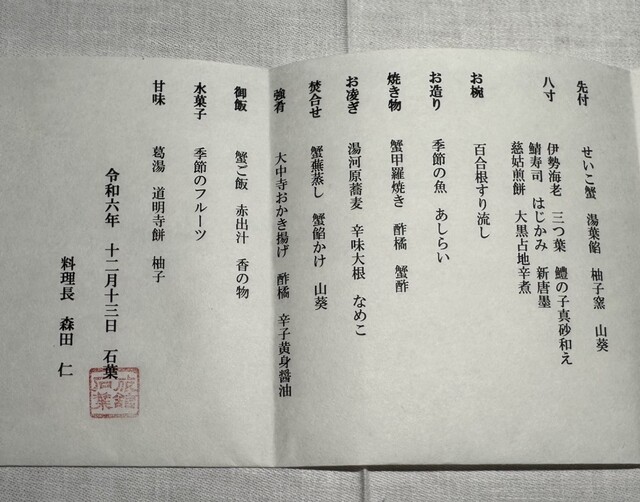 先付 せいこ蟹 湯葉餡 柚子窯 山葵
八寸 伊勢海老 三つ葉 鱧の子真砂和え
鯖寿司 はじかみ 新唐墨
慈姑煎餅 大黒占地辛煮
お椀 百合根すり流し
お造り 季節の魚 あしらい
焼き物 蟹甲羅焼き 酢橘 蟹酢
お凌ぎ 湯河原蕎麦 辛味大根 なめこ
焚合せ 蟹蕪蒸し 蟹餡かけ 山葵
強肴 大中寺おかき揚げ 酢橘 辛子黄身醤油
御飯 蟹ご飯 赤出汁 香の物
水菓子 季節のフルーツ
甘味 葛湯 道明寺餅 柚子
令和六年 十二月十三日 石葉
料理長 森田 仁
旅館
石葉